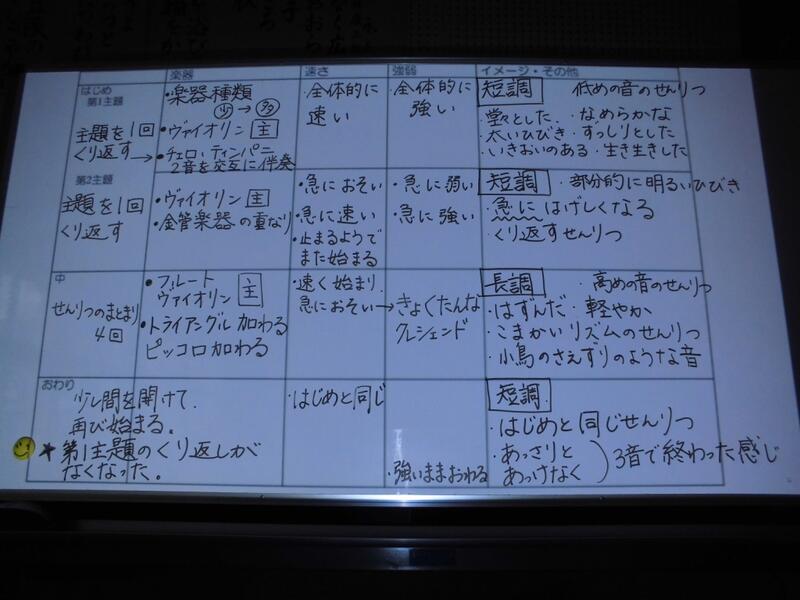 楽器 速さ 強弱 イメージ・その他
はじめ
第1主題
主題を1回
くり返す→
・楽器種類
少→多
・ヴァイオリン 主
・チェロ、ティンパニ
2音を交互に伴奏
・全体的に
速い
・全体的に
強い
短調 低めの音のせんりつ
・堂々とした ・なめらかな
・太いひびき ・ずっしりとした
・いきおいのある ・生き生きした
第2主題
主題を1回
くり返す
・ヴァイオリン 主
・金管楽器の重なり
・急におそい
・急に速い
・止まるようで
また始まる
・急に弱い
・急に強い
短調 ・部分的に明るいひびき
・急にはげしくなる
・くり返すせんりつ
中
せんりつのまとまり
4回
・フルート
ヴァイオリン 主
・トライアングル加わる
ピッコロ加わる
・速く始まり、
急におそい→
きょくたんな
クレシェンド
長調 ・高めの音のせんりつ
・はずんだ ・軽やか
・こまかいリズムのせんりつ
・小鳥のさえずりのような音
おわり
少し間を開けて、
再び始まる。
★第1主題のくり返しが
なくなった。
・はじめと同じ
・強いままおわる
短調
・はじめと同じせんりつ
・あっさりと
あっけなく
3音で終わった感じ